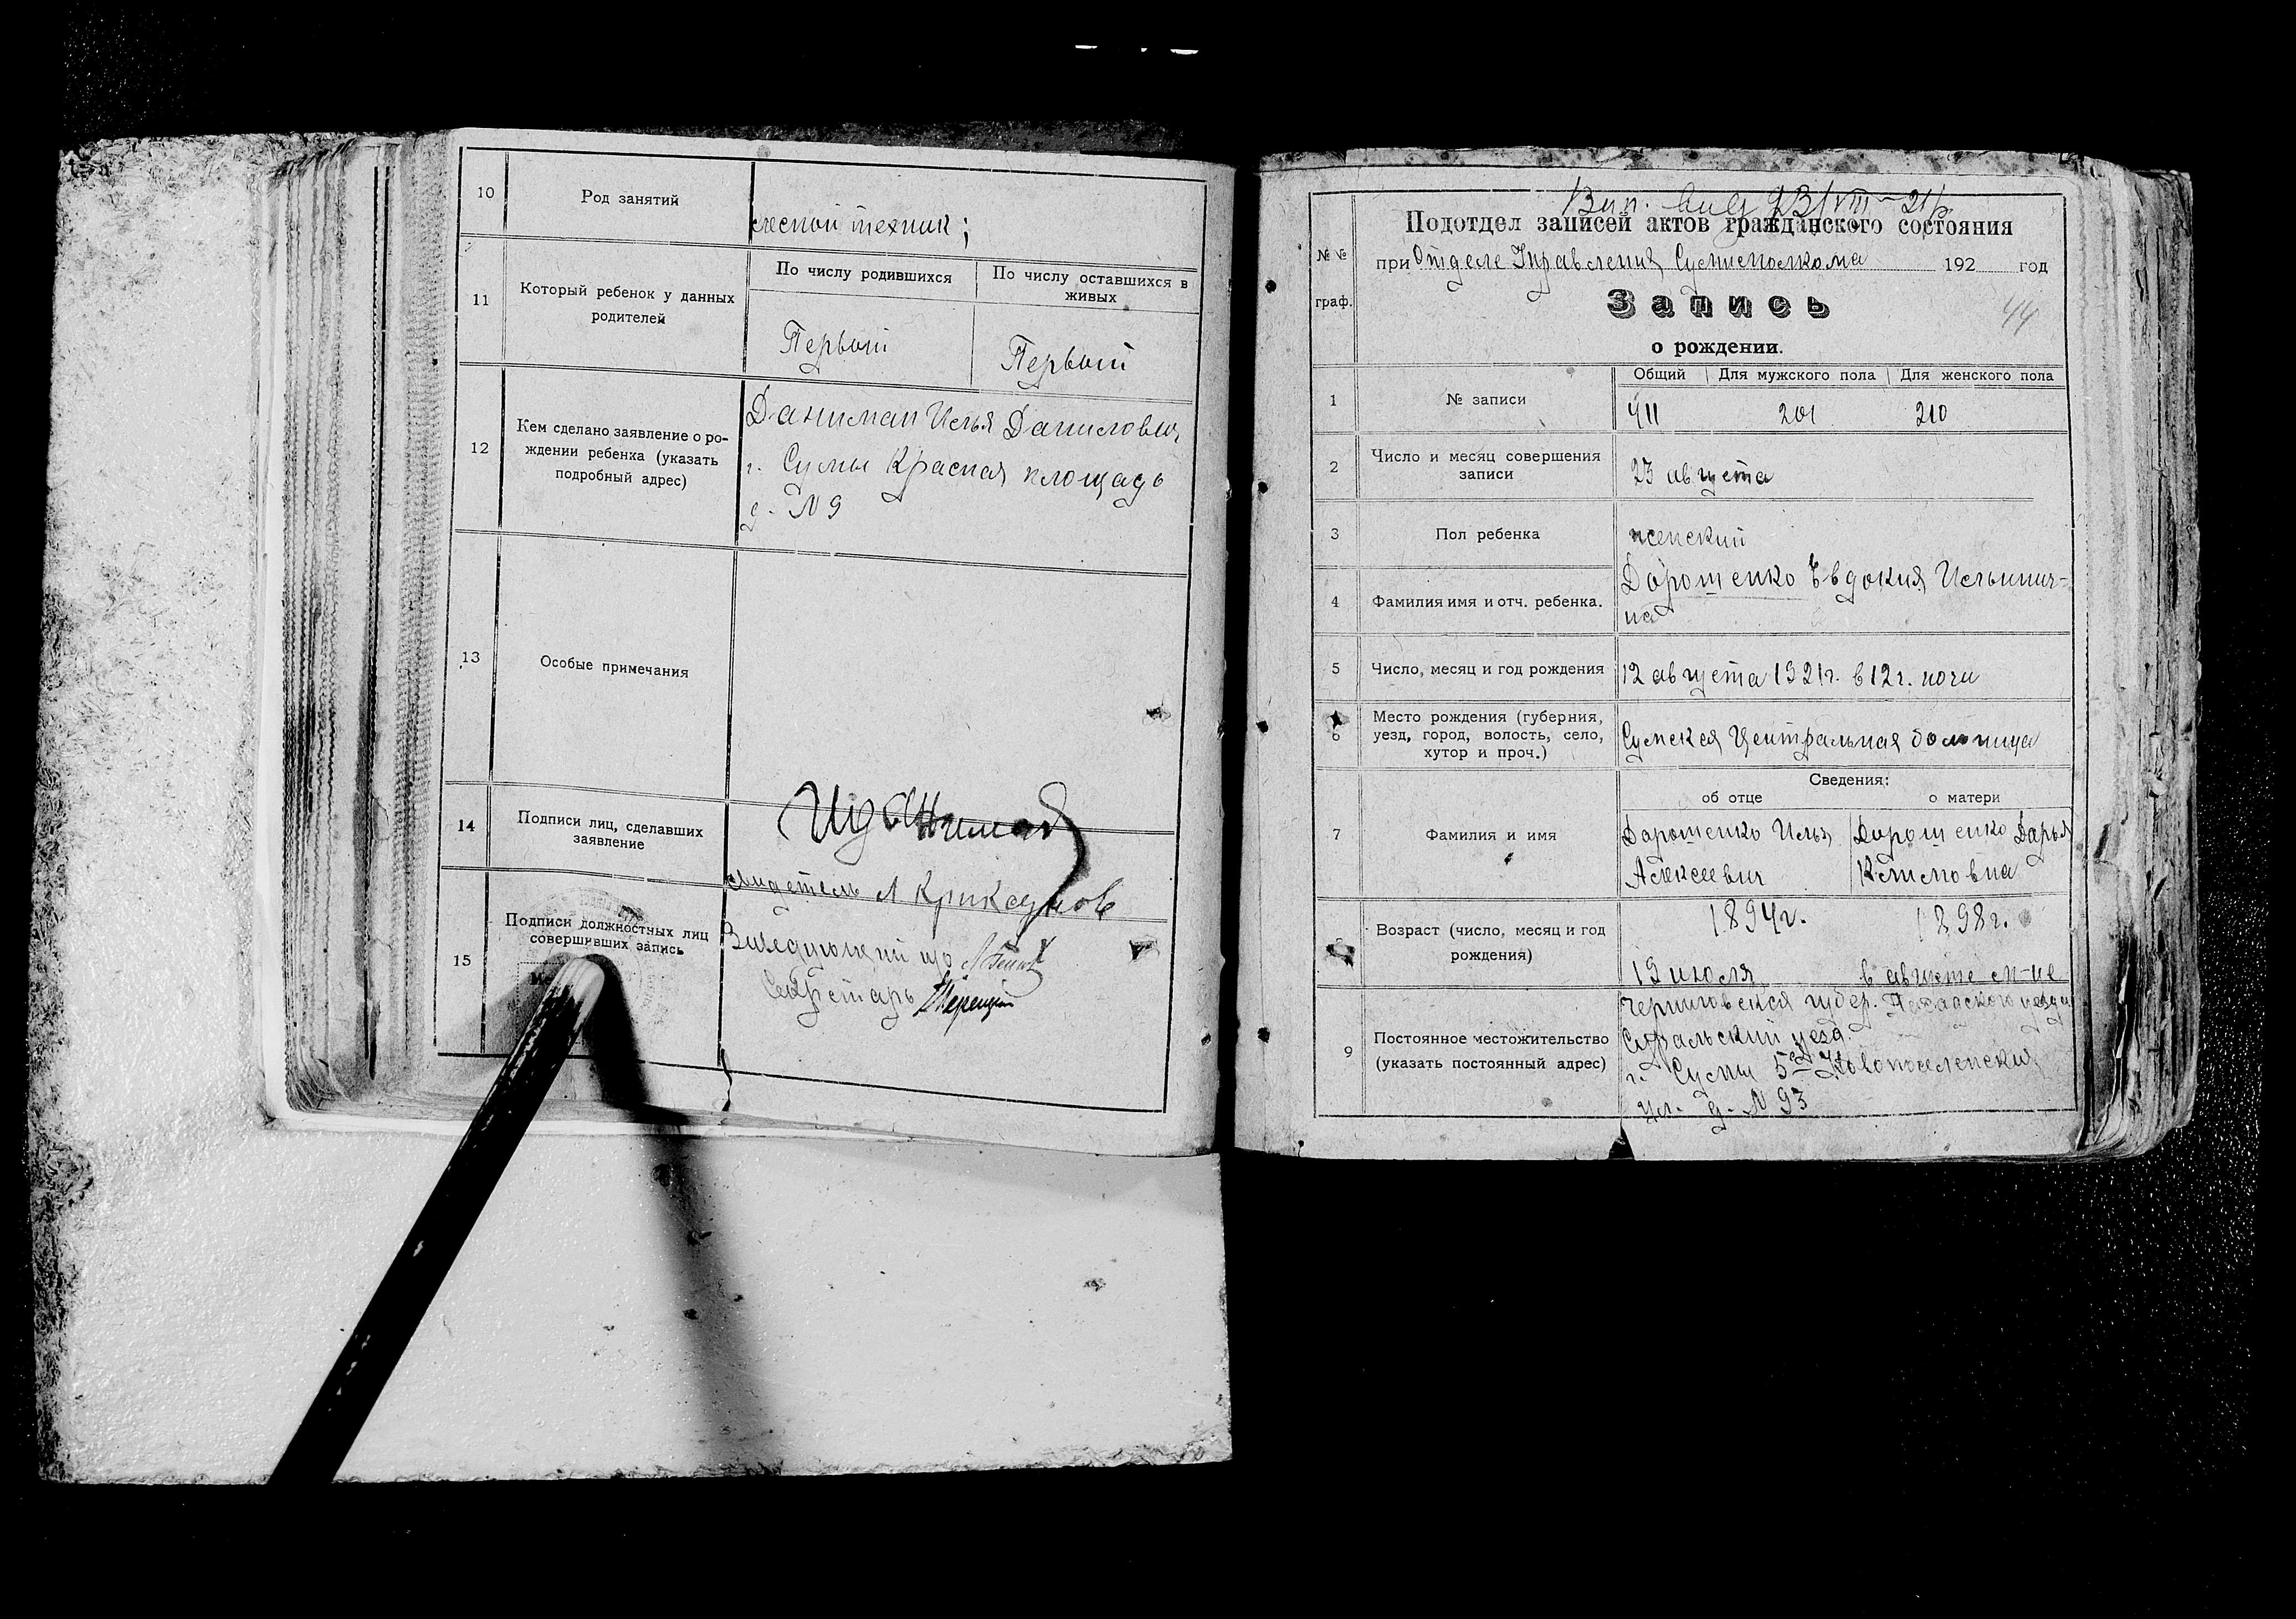 10
Род занятий
лесной техник;
11
Который ребенок у данных
родителей
По числу родившихся
По числу оставшихся в
живых
Первый
Первый
12
Кем сделано заявление о ро-
ждении ребенка (указать
подробный адрес)
Даниман Илья Данилович
г. Сумы Красная площадь
д. № 9
13
Особые примечания
14
Подписи лиц, сделавших
заявление
свидетель Л Криксунов
15
Подписи должностных лиц
совершивших запись
Заведующий п/о
Секретарь
Вып. VIII-21
Подотдел записей актов гражданского состояния
№ №
граф.
при Отделе Управления Сумисполкома 192 год
Запись
44
о рождении.
1
№ записи
Общий Для мужского пола Для женского пола
411 201 210
2
Число и месяц совершения
записи
23 августа
3
Пол ребенка
женский
4
Фамилия имя и отч. ребенка.
Дорошенко Евдокия Ильинич-
на
5
Число, месяц и год рождения
12 августа 1921г. в 12 г. ночи
6
Место рождения (губерния,
уезд, город, волость, село,
хутор и проч.)
Сумская Центральная больница
Сведения:
об отце
о матери
7
Фамилия и имя
Дорошенко Илья
Алексеевич
Дорошенко Дарья
Климовна
Возраст (число, месяц и год
рождения)
1894г.
19 июля
1898г.
в августе м-це
9
Постоянное местожительство
(указать постоянный адрес)
Черниговская губер. уезда
уезд.
г. Сумы 5ая Новопоселенская
ул. д. № 93